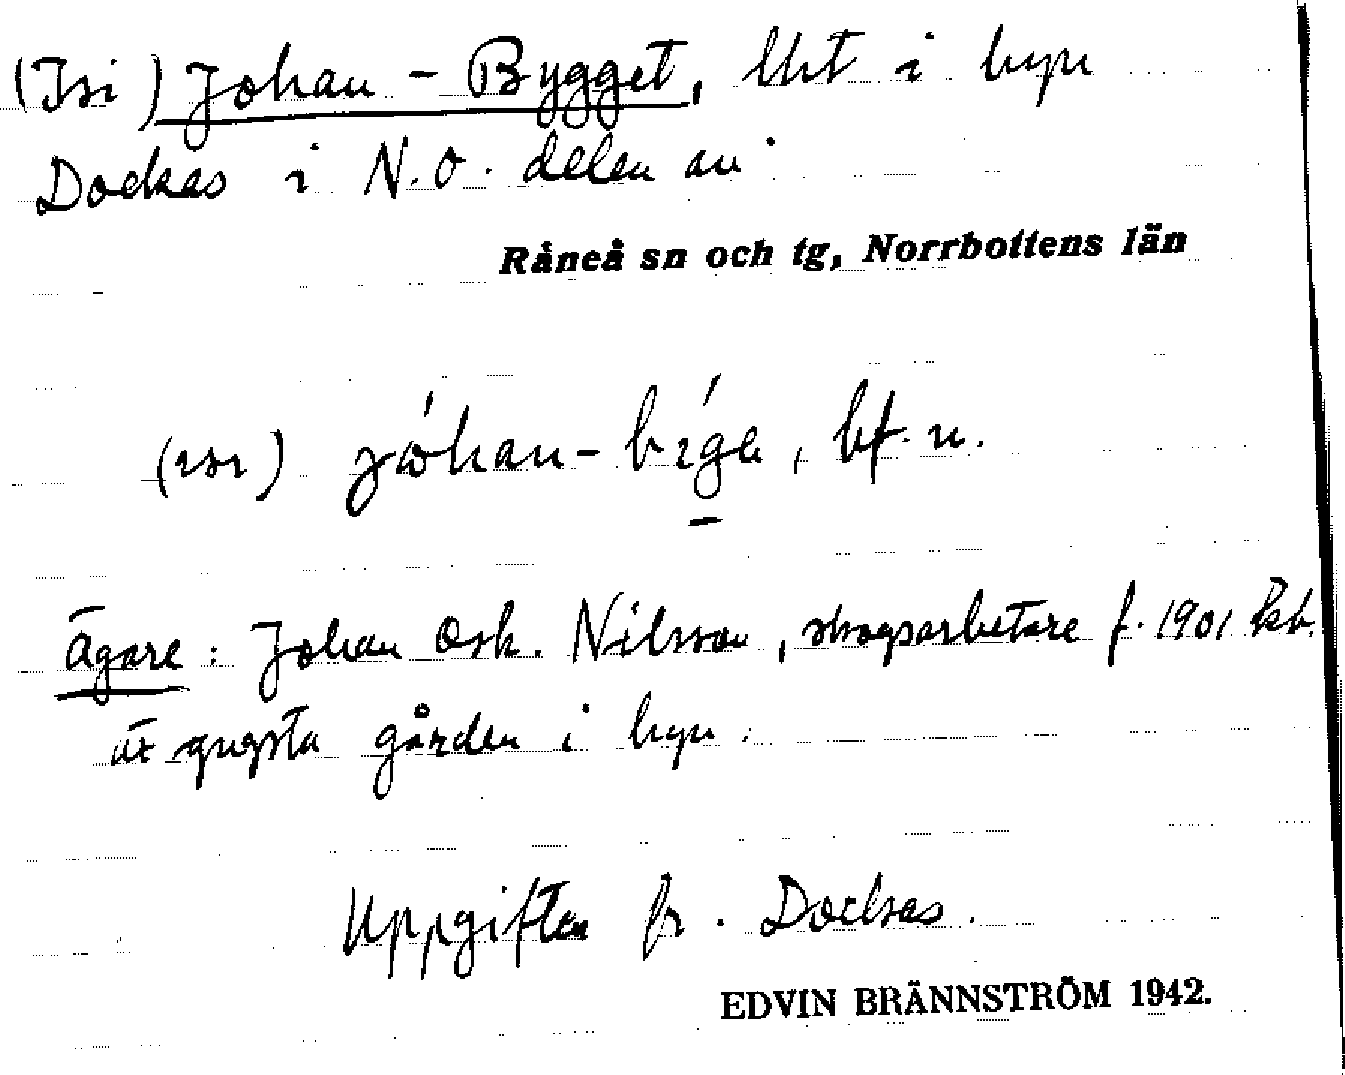 (Isi) Johan-Bygget, lht i byn
Dockas i N.O. delen av
Råneå sn och tg, Norrbottens län
(ısı) jóhan- , bf. n.
Ägare: Johan Osk. Nilsson, skogsarbetare f. 1901
är yngsta gården i byn.
Uppgiften fr. Dockas.
EDVIN BRÄNNSTRÖM 1942.